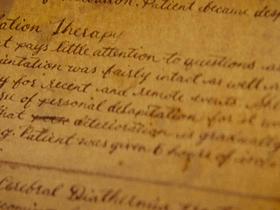 Patient became des
ation Therapy
t pays little attention to questions as
entation was fairly intact as well a
y for recent and remote events. S
of personal debapitation for it w
hat deterioration is gradually
g. Patient was given 6 hours of
Cerebral Diathermy